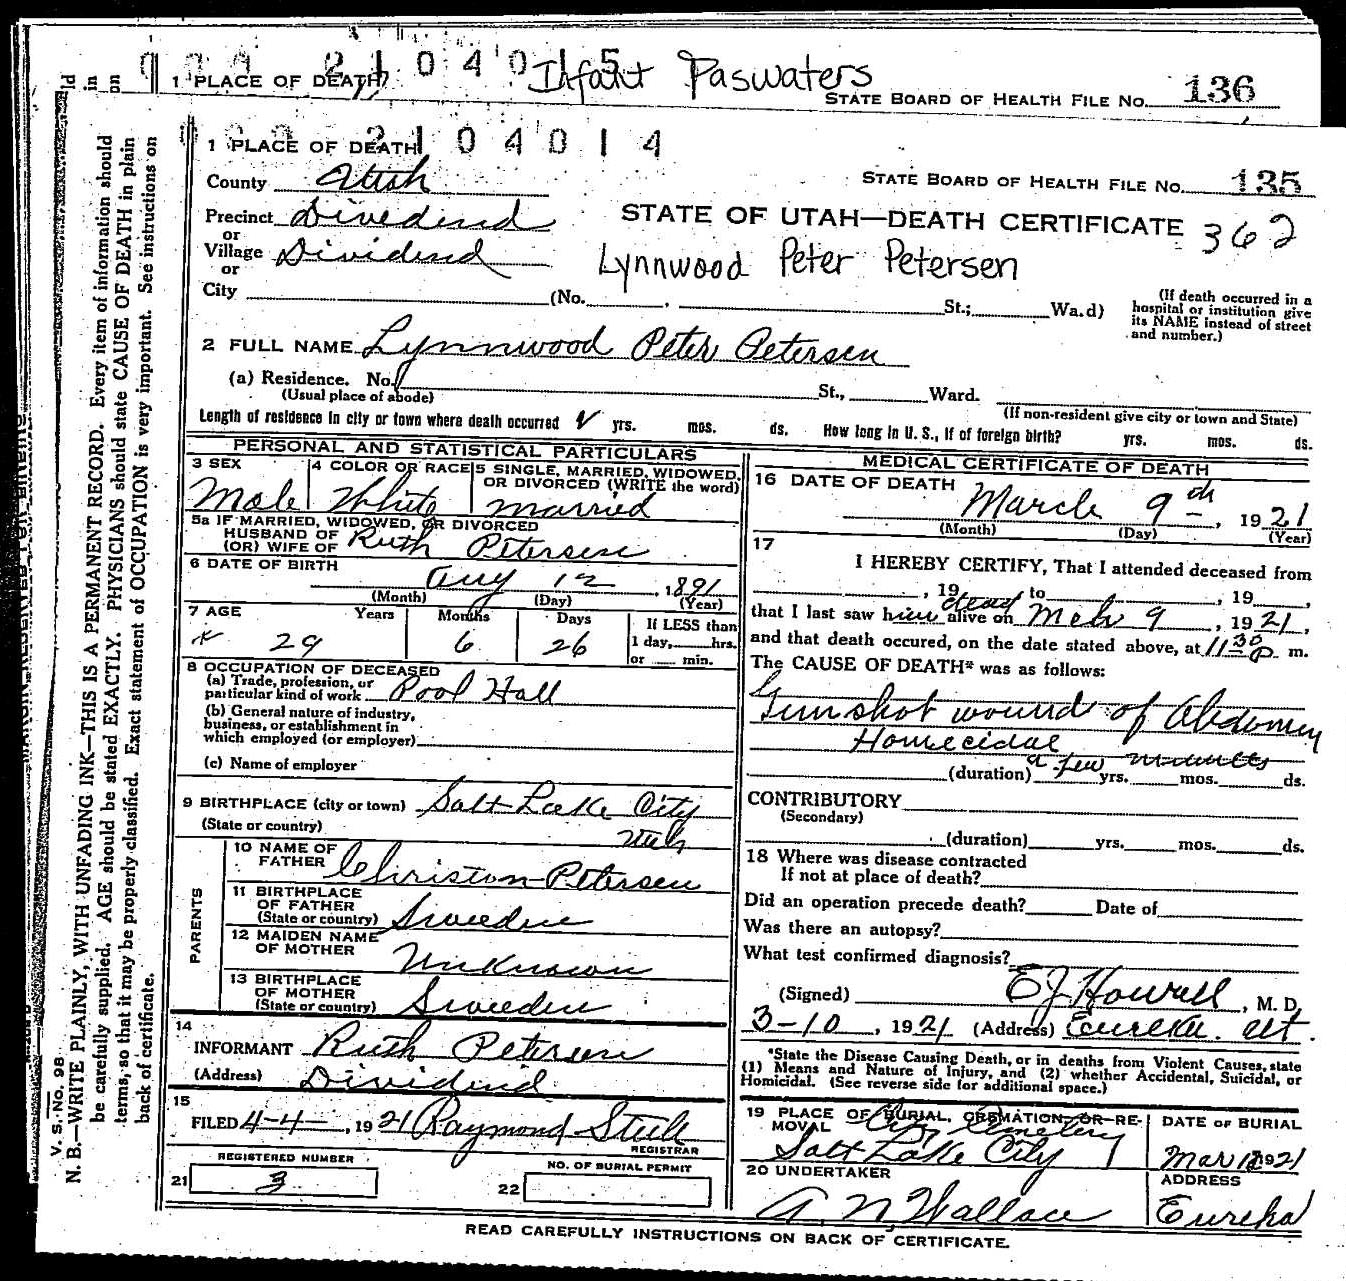 2104015 Infant Paswaters
1 PLACE OF DEATH
STATE BOARD OF HEALTH FILE NO. 136
2104014
1 PLACE OF DEATH
STATE BOARD OF HEALTH FILE NO. 135
County Utah
Precinct Dividend
STATE OF UTAH—DEATH CERTIFICATE 362
or
Village Dividend
Lynnwood Peter Petersen
or
City (No. , St.; Wa.d)
(If death occurred in a hospital or institution give its NAME instead of street and number.)
2 FULL NAME Lynnwood Peter Petersen
(a) Residence. No. St., Ward.
(Usual place of abode)
(If non-resident give city or town and State)
Length of residence in city or town where death occurred yrs. mos. ds. How long in U. S., if of foreign birth? yrs. mos. ds.
PERSONAL AND STATISTICAL PARTICULARS
3 SEX
Male
4 COLOR OR RACE
White
5 SINGLE, MARRIED, WIDOWED, OR DIVORCED (WRITE the word)
married
5a IF MARRIED, WIDOWED, OR DIVORCED
HUSBAND OF
(OR) WIFE OF Ruth Petersen
6 DATE OF BIRTH
Aug 12, 1891
(Month) (Day) (Year)
7 AGE Years Months Days
29 6 26
If LESS than
1 day, hrs.
or min.
8 OCCUPATION OF DECEASED
(a) Trade, profession, or
particular kind of work Pool Hall
(b) General nature of industry,
business, or establishment in
which employed (or employer)
(c) Name of employer
9 BIRTHPLACE (city or town) Salt Lake City
(State or country) Utah
PARENTS
10 NAME OF
FATHER Christon Petersen
11 BIRTHPLACE
OF FATHER
(State or country) Sweeden
12 MAIDEN NAME
OF MOTHER Unknown
13 BIRTHPLACE
OF MOTHER
(State or country) Sweeden
14
INFORMANT Ruth Petersen
(Address) Dividend
15
FILED 4-4-, 1921 Raymond Steele
REGISTRAR
REGISTERED NUMBER
21 3
NO. OF BURIAL PERMIT
22
MEDICAL CERTIFICATE OF DEATH
16 DATE OF DEATH
March 9th, 1921
(Month) (Day) (Year)
17
I HEREBY CERTIFY, That I attended deceased from
, 19 to , 19 ,
that I last saw him dead alive on Mch 9, 1921,
and that death occured, on the date stated above, at 1130 P m.
The CAUSE OF DEATH* was as follows:
Gunshot wound of Abdomen
Homecidal
a few minutes
(duration) yrs. mos. ds.
CONTRIBUTORY
(Secondary)
(duration) yrs. mos. ds.
18 Where was disease contracted
If not at place of death?
Did an operation precede death? Date of
Was there an autopsy?
What test confirmed diagnosis?
(Signed) E J Howell, M. D.
3-10, 1921 (Address) Eureka. Ut.
*State the Disease Causing Death, or in deaths from Violent Causes, state
(1) Means and Nature of Injury, and (2) whether Accidental, Suicidal, or
Homicidal. (See reverse side for additional space.)
19 PLACE OF BURIAL, CREMATION OR RE-
MOVAL City Cemetery
Salt Lake City
DATE OF BURIAL
Mar 1921
20 UNDERTAKER
A. N. Wallace
ADDRESS
Eureka
READ CAREFULLY INSTRUCTIONS ON BACK OF CERTIFICATE.
V. S. No. 98
N. B.—WRITE PLAINLY, WITH UNFADING INK—THIS IS A PERMANENT RECORD. Every item of information should
be carefully supplied. AGE should be stated EXACTLY. PHYSICIANS should state CAUSE OF DEATH in plain
terms, so that it may be properly classified. Exact statement of OCCUPATION is very important. See instructions on
back of certificate.
ld
in
on